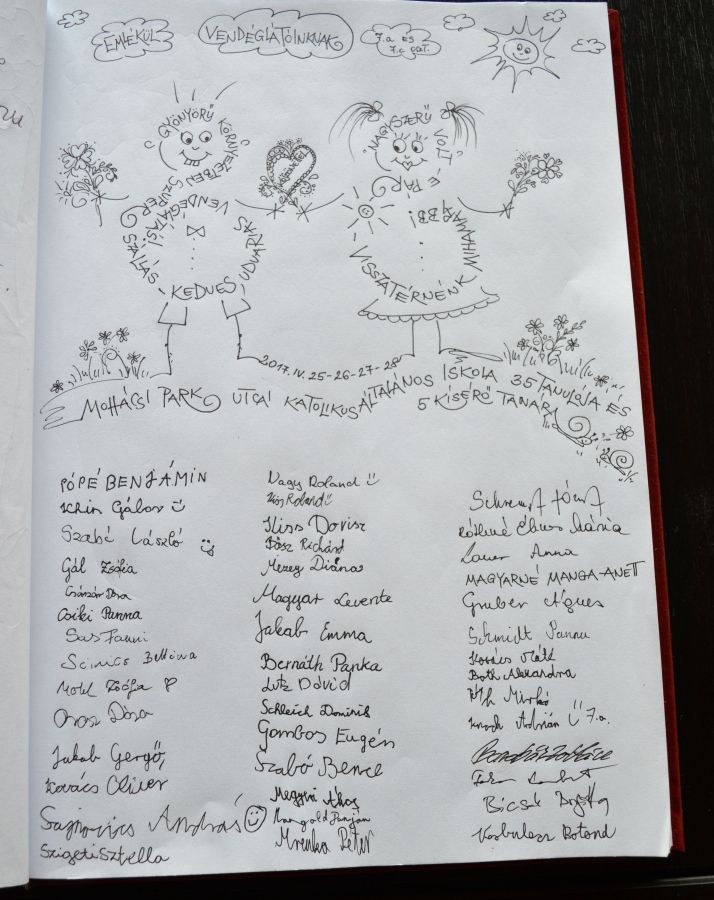 EMLÉKÜL
VENDÉGLÁTÓINKNAK
7.a ÉS
7.c oszt.
GYÖNYÖRŰ KÖRNYEZETBEN SZUPER
VENDÉGLÁTÁS!
SZÁLLÁS - KEDVES UDVARIAS
NAGYSZERŰ VOLT
E PÁR NAP!
MIHAMARABB
VISSZATÉRNÉNK
2017.IV. 25-26-27-28
MOHÁCSI PARK UTCAI KATOLIKUS ÁLTALÁNOS ISKOLA 35 TANULÓJA ÉS
5 KÍSÉRŐ TANÁRA
PÓPÉ BENJÁMIN
Gábor
Szabó László
Gál Zsófia
Császár Dóra
Csiki Panna
Sas Fanni
Bettina
Zsófia
Orosz Dóra
Jakab Gergő
Kovács Oliver
András
Szigeti Sztella
Nagy Roland
Kiss Roland
Kiss Dorisz
Richárd
Mézey Diána
Magyar Levente
Jakab Emma
Bernáth Panka
Lutz Dávid
Schleich Dominik
Gombos Eugén
Szabó Bence
Megyeri Ákos
Mangold
Mrenka Péter
József
Mária
Lauer Anna
MAGYARNÉ MANGA-ANETT
Gruber Ágnes
Schmidt Panna
Kovács Máté
Both Alexandra
Mirkó
Adrián 7.a.
Botond